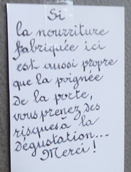 Si
la nourriture
fabriquée ici
est aussi propre
que la poignée
de la porte,
vous prenez des
risques à la
dégustation...
Merci!